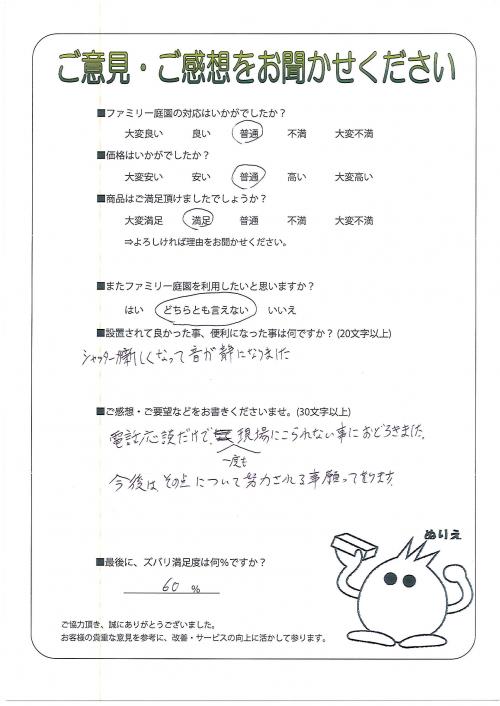 ご意見・ご感想をお聞かせください
■ファミリー庭園の対応はいかがでしたか？
大変良い 良い 普通 不満 大変不満
■価格はいかがでしたか？
大変安い 安い 普通 高い 大変高い
■商品はご満足頂けましたでしょうか？
大変満足 満足 普通 不満 大変不満
⇒よろしければ理由をお聞かせください。
■またファミリー庭園を利用したいと思いますか？
はい どちらとも言えない いいえ
■設置されて良かった事、便利になった事は何ですか？(20文字以上)
シャッターが新しくなって音が静になりました
■ご感想・ご要望などをお書きくださいませ。(30文字以上)
電話応談だけで、現場にこられない事におどろきました。
一度も
今後は その点について努力される事願っております
ぬりえ
■最後に、ズバリ満足度は何％ですか？
60 ％
ご協力頂き、誠にありがとうございました。
お客様の貴重な意見を参考に、改善・サービスの向上に活かして参ります。